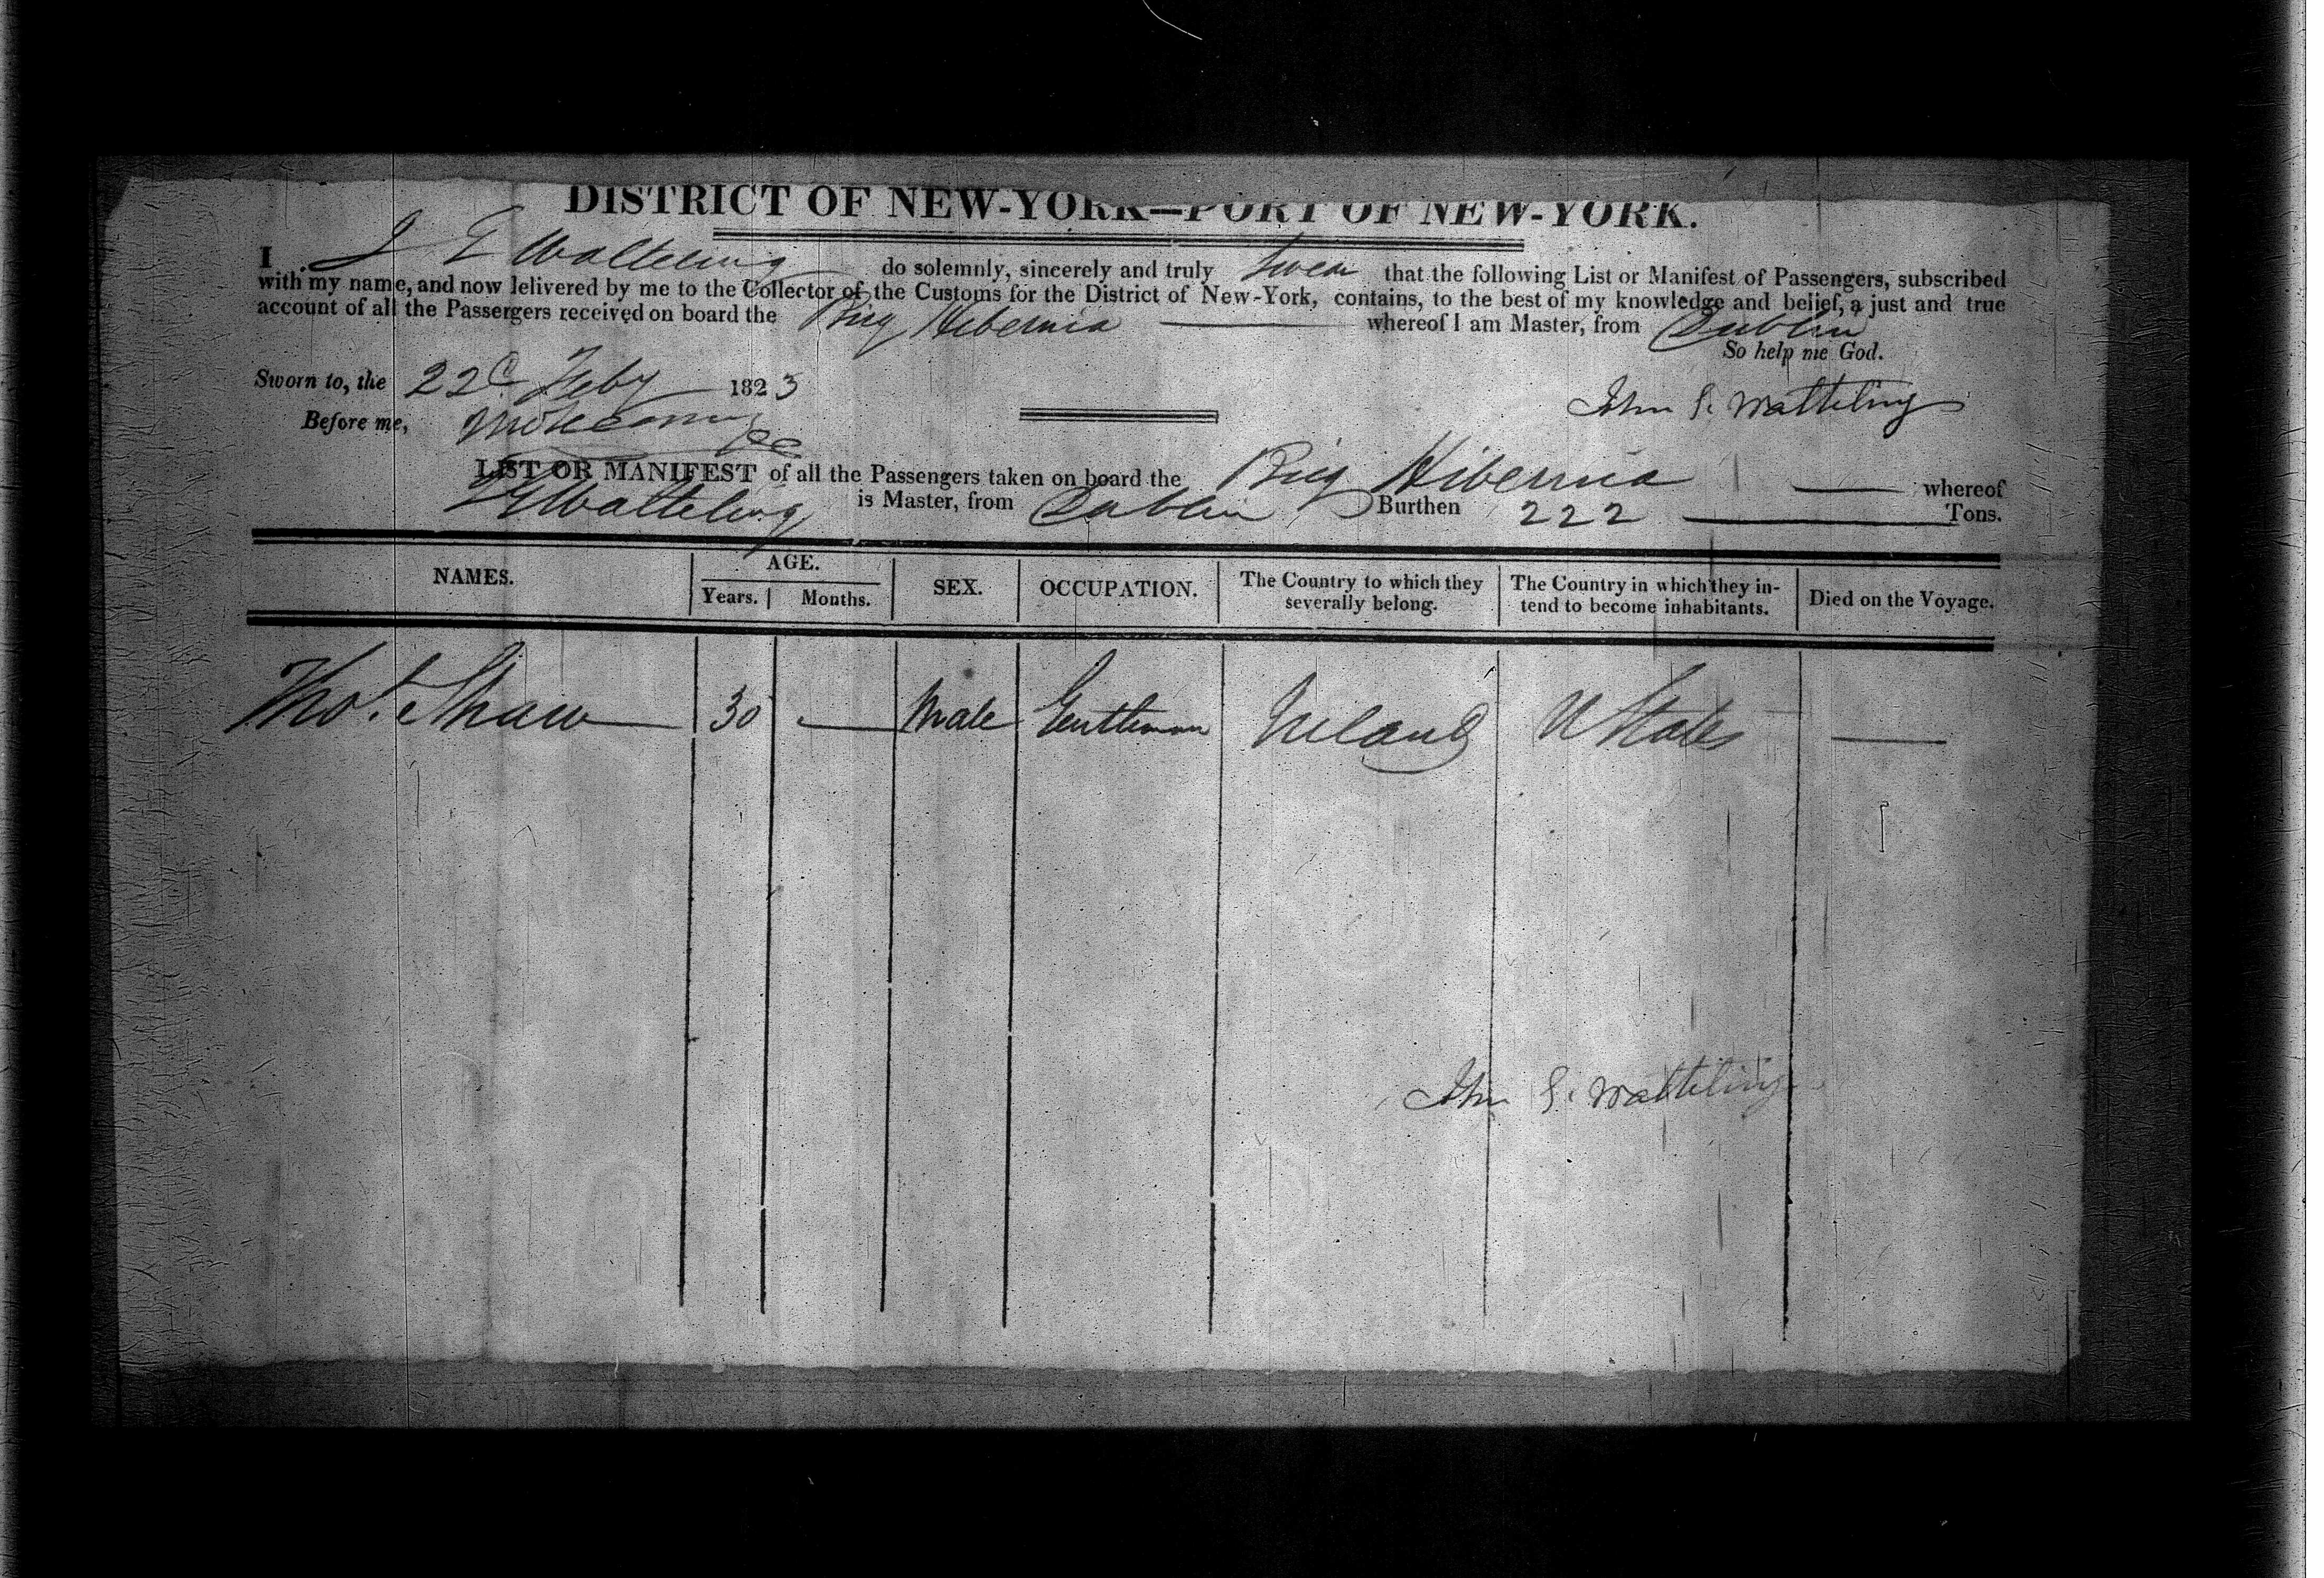 DISTRICT OF NEW-YORK—PORT OF NEW-YORK.
I J E Watteling do solemnly, sincerely and truly swear that the following List or Manifest of Passengers, subscribed
with my name, and now lelivered by me to the Collector of the Customs for the District of New-York, contains, to the best of my knowledge and belief, a just and true
account of all the Passergers received on board the Brig Hibernia whereof I am Master, from Dublin
So help me God.
Sworn to, the 22 Feby 1823
John S. Watteling
Before me,
LIST OR MANIFEST of all the Passengers taken on board the Brig Hibernia whereof
Watteling is Master, from Dublin Burthen 222 Tons.
NAMES. AGE. SEX. OCCUPATION. The Country to which they severally belong. The Country in which they in-tend to become inhabitants. Died on the Voyage.
Years. Months.
Thos. Shaw 30 — Male Gentleman Ireland U States —
John S. Watteling